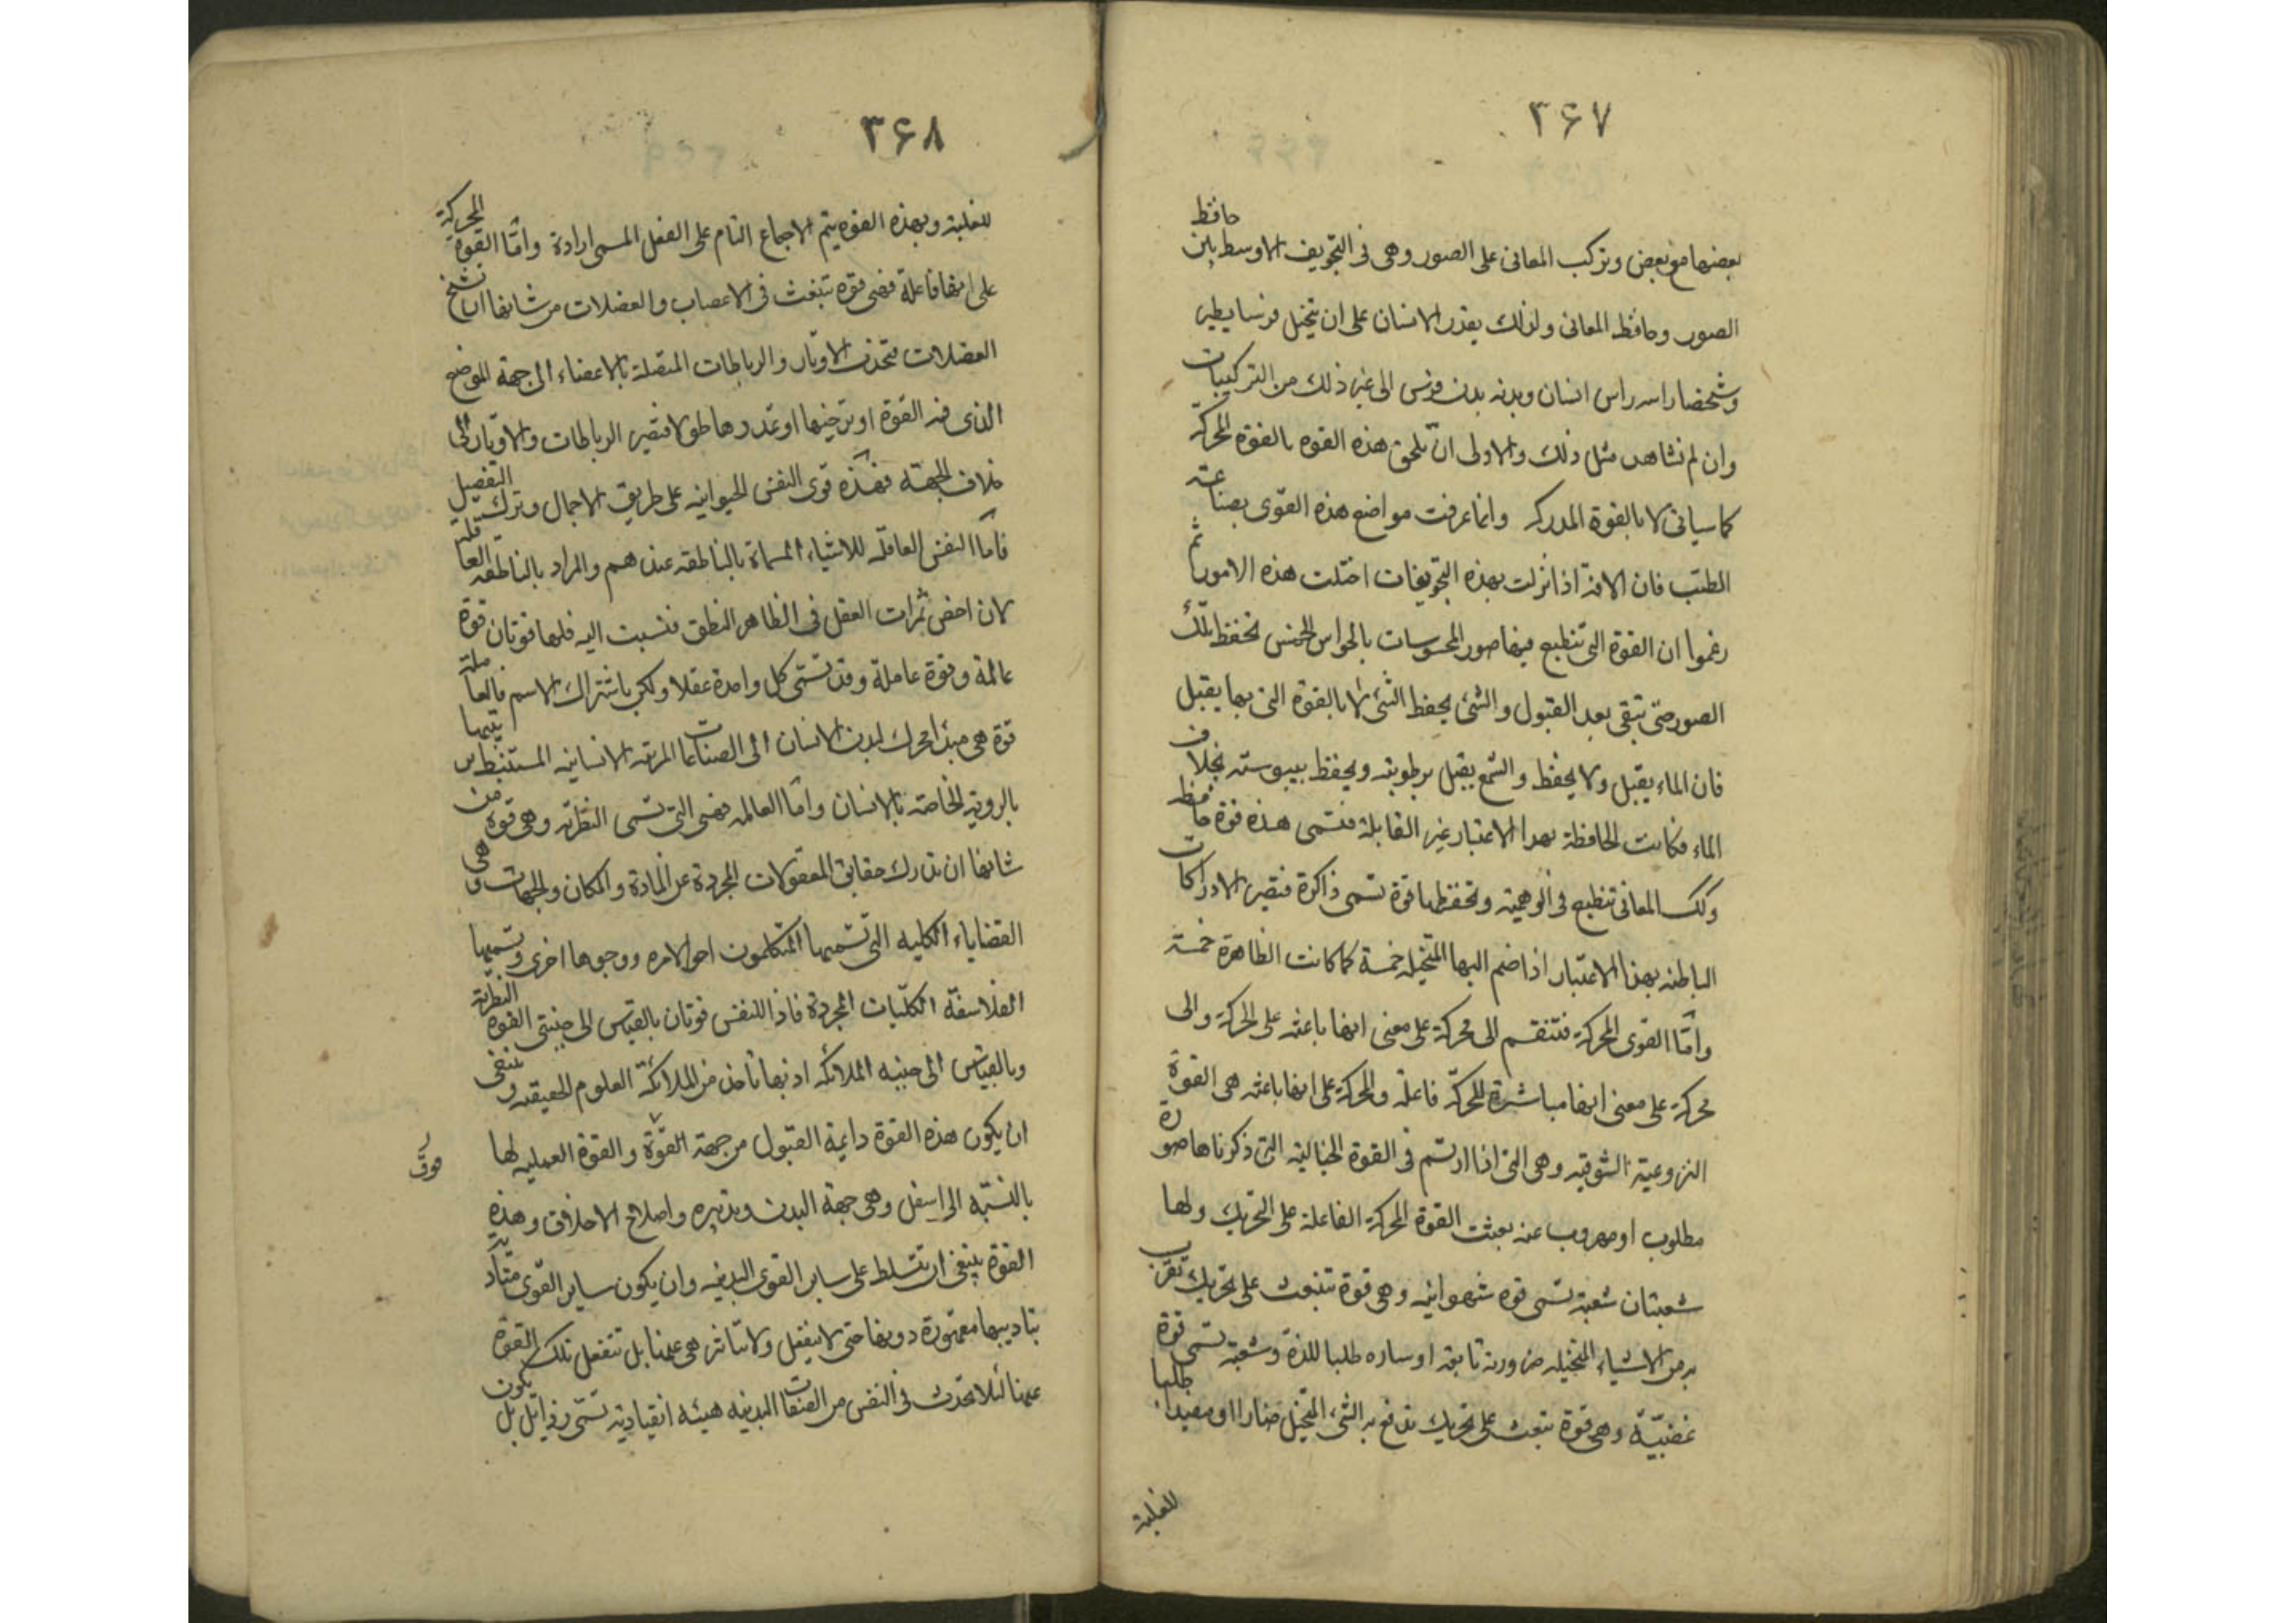 ٣۶٧
بعضها مع بعض وتركب المعانى على الصور وهى فى التجويف الاوسط بين حافظ
الصور وحافظ المعانى ولذلك يقدر الانسان على ان يتخيل فرسا يطير
وشخصا راسه راس انسان وبدنه بدن فرس الى غير ذلك من التركيبات
وان لم نشاهد مثل ذلك والاولى ان تلحق هذه القوه بالقوة المحركة
كما سياتى لا بالقوة المدركه وانما عرفت مواضع هذه القوى بصناعته
الطب فان الافة اذا نزلت بهذه التجويفات اختلت هذه الامور ثم
زعموا ان القوة التى تنطبع فيها صور المحسوسات بالحواس الخمس تحفظ تلك
الصور حتى تبقى بعد القبول والشئ يحفظ الشئ لا بالقوة التى بها يقبل
فان الماء يقبل ولا يحفظ والشمع يقبل برطوبته ويحفظ بيبوسته بخلاف
الماء فكانت الحافظة بهدا الاعتبار غير القابلة فتسمى هذه قوة حافظه
وكك المعانى تنطبع فى الوهمية وتحفظها قوة تسمى ذاكرة فتصير الادراكات
الباطنه بهذا الاعتبار اذا ضم اليها المتخيله خمسة كما كانت الظاهرة خمسة
وامّا القوى المحركة فتنقسم الى محركة على معنى انها باعثه على الحركة والى
محركة على معنى انها مباشرة للحركة فاعلة والمحركة على انها باعثه هى القوة
النزوعية الشوقيه وهى التى اذا ارتسم فى القوة الخيالية التى ذكرناها صورة
مطلوب او مهروب عنه بعثت القوة المحركة الفاعلة على التحريك ولها
شعبتان شعبة تسمى قوه شهوانيه وهى قوة تنبعث على تحريك تقرب
به من الاشياء المتخيله ضرورية نافعة او ساره طلبا للذة وشعبة تسمى قوة
غضبيّة وهى قوة تبعث على تحريك تدفع به الشئ المتخيل ضارا او مفسدا طلبا
للغلبة
٣۶٨
للغلبة وبهذه القوه يتم الاجماع التام على الفعل المسمى ارادة وامّا القوة المحركة
على انها فاعلة فهى قوة تنبعث فى الاعصاب والعضلات من شانها ان تشنج
العضلات فتجذب الاوتار والرباطات المتصلة بالاعضاء الى جهة الموضع
الذى فيه القوة او ترخيها او تمددها طولا فتصير الرباطات والاوتار الى
خلاف الجهة فهذه قوى النفس الحيوانيه على طريق الاجمال وترك التفصيل
فامّا النفس العاقلة للاشياء المسماة بالناطقه عندهم والمراد بالناطقه العاقلة
لان اخص ثمرات العقل فى الظاهر النطق فنسبت اليه فلها قوتان قوة
عالمة وقوة عاملة وقد تسمّى كل واحدة عقلا ولكن باشتراك الاسم فالعاملة
قوة هى مبدأ محرك لبدن الانسان الى الصناعات المرتبه الانسانيه المستنبط ترتيبها
بالروية الخاصة بالانسان وامّا العالمه فهى التى تسمى النظرية وهى قوة من
شانها ان تدرك حقايق المعقولات المجردة عن المادة والمكان والجهات وهى
القضاياء الكليه التى تسميها المتكلمون احوالا مره ووجوها اخرى وتسميها
الفلاسفة الكلّيات المجردة فاذا للنفس قوتان بالقياس الى جنبتى القوه النظرية
وبالقياس الى جنبه الملائكه اذ بها تاخذ من الملائكة العلوم الحقيقيه وينبغى
ان يكون هذه القوة دايمة القبول من جهة القوّة والقوة العمليه لها
فوق
بالنسبّة الى اسفل وهى جهة البدن وتدبيره واصلاح الاخلاق وهذه
القوة ينبغى ان تتسلط على ساير القوى البدنيه وان يكون ساير القوى متأدبة
بتاديبها مقهورة دونها حتى لا ينفعل ولا تتاثر هى عنها بل تنفعل تلك القوة
عنها لئلا تحدث فى النفس من الصفات البدنيه هيئه انقيادية تسمّى رذايل بل يكون